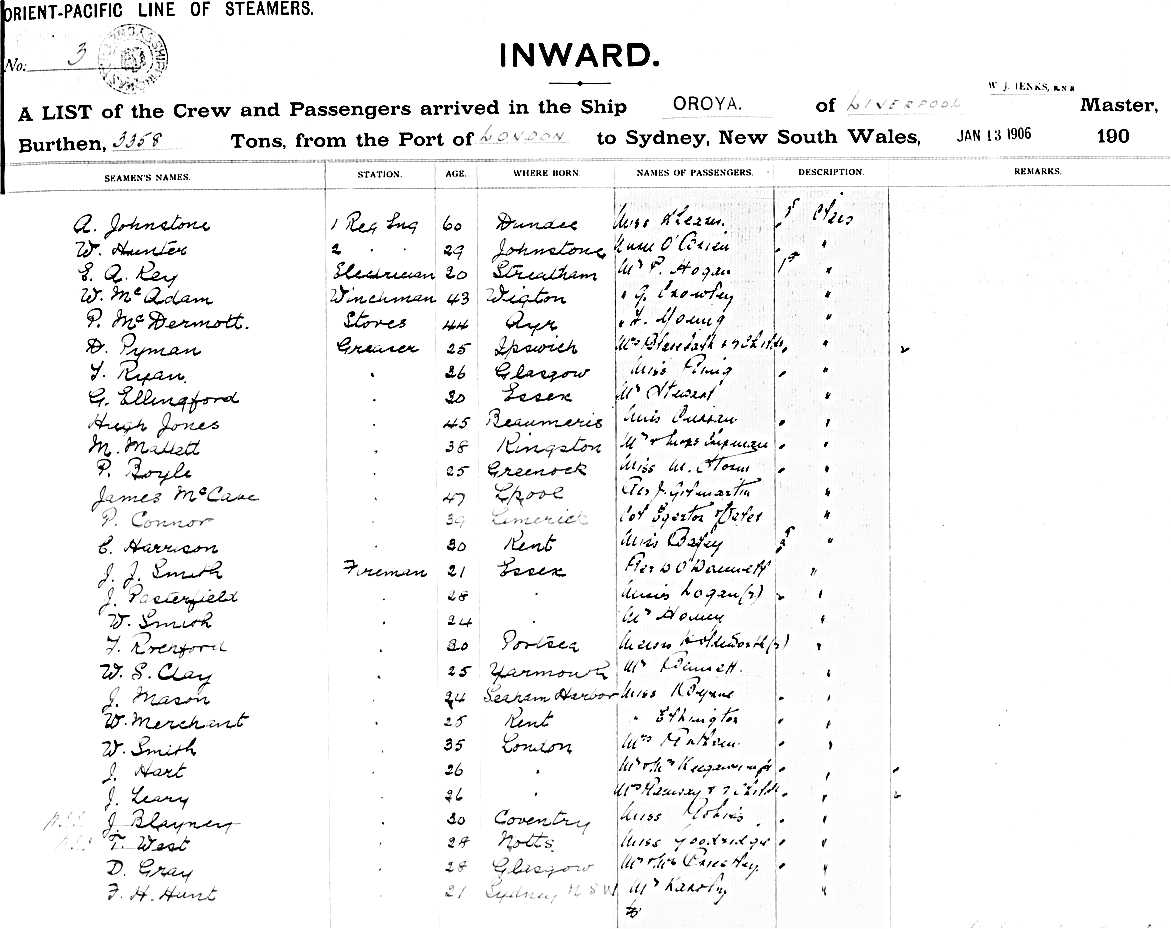 ORIENT-PACIFIC LINE OF STEAMERS.
No. 3
INWARD.
W. J. JENKS, R.N.R
A LIST of the Crew and Passengers arrived in the Ship OROYA. of LIVERPOOL Master,
Burthen, 3358 Tons, from the Port of LONDON to Sydney, New South Wales, JAN 13 1906 190
SEAMEN'S NAMES. STATION. AGE. WHERE BORN NAMES OF PASSENGERS. DESCRIPTION. REMARKS.
A. Johnstone 1 Reg Eng 60 Dundee Miss
W. Hunter 2 " 29 Johnstone Nurse O'Brien "
E. A. Key Electrician 20 Streatham Mr P. Hogan 1st "
W. McAdam Winchman 43 Wigton " G. Crowley "
P. McDermott. Stores 44 Ayr " Young "
D. Pyman Greaser 25 Ipswich Mrs "
T. Ryan. " 26 Glasgow Miss "
G. Ellingford " 30 Essex Mr Stewart "
Hugh Jones " 45 Beaumeris Miss Curran "
M. Mallett " 38 Kingston Mr & "
P. Boyle " 25 Greenock Miss M. Storm "
James McCave " 47 Lpool Rev J. Gilmartin "
P. Connor " 39 Limerick Col Egerton "
C. Harrison " 30 Kent Miss "
J. J. Smith Fireman 21 Essex Rev D O'Donnell "
J. Pasterfield " 28 " Logan (2) "
W. Smith " 24 " Mr "
T. " 30 Portsea Holdsworth (2) "
W. S. Clay " 25 Yarmouth Mr Bennett. "
J. Mason " 24 Searam Harbor Miss Byrne "
W. Merchant " 25 Kent " "
W. Smith " 35 London Mrs "
J. Hart " 26 " Mr & Mrs "
J. Leary " 26 " Mrs Ramsay & 2 Childn "
J. Blayney " 30 Coventry Miss "
T. West " 28 Notts. Miss Goodridge "
D. Gray " 28 Glasgow Mr & Mrs "
F. H. Hunt " 21 Sydney N S W Mr "